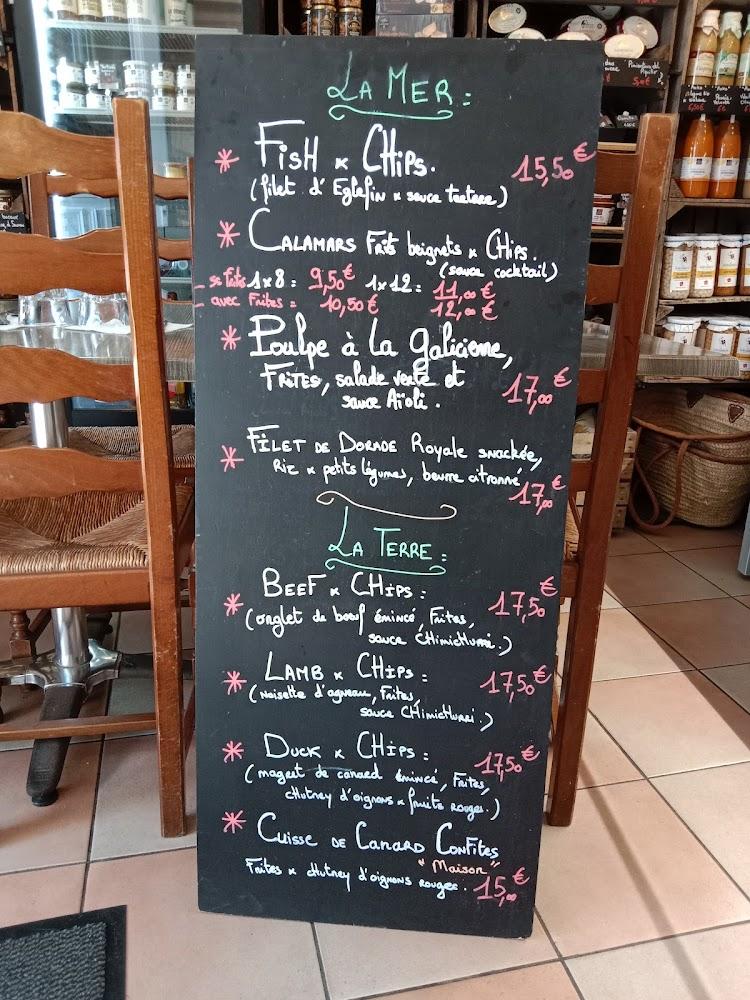 La Mer :
* Fish x Chips. 15,50€
(filet d'Eglefin x sauce tartare)
* Calamars Frits beignets x Chips.
(sauce cocktail)
- ss frites 1x8 : 9,50€ 1x12 : 11,00€
- avec Frites : 10,50€ 12,00€
* Poulpe à la galicienne,
Frites, salade verte et
sauce Aïoli. 17,00€
* Filet de Dorade Royale snackée,
Riz x petits légumes, beurre citronné
17,00€
La Terre :
* Beef x Chips : 17,50€
(onglet de boeuf émincé, Frites,
sauce Chimichurri.)
* Lamb x Chips : 17,50€
(Noisette d'agneau, Frites,
sauce Chimichurri.)
* Duck x Chips : 17,50€
(magret de canard émincé, Frites,
chutney d'oignons x fruits rouges.)
* Cuisse de Canard Confites
"Maison"
Frites x chutney d'oignons rouges. 15,00€